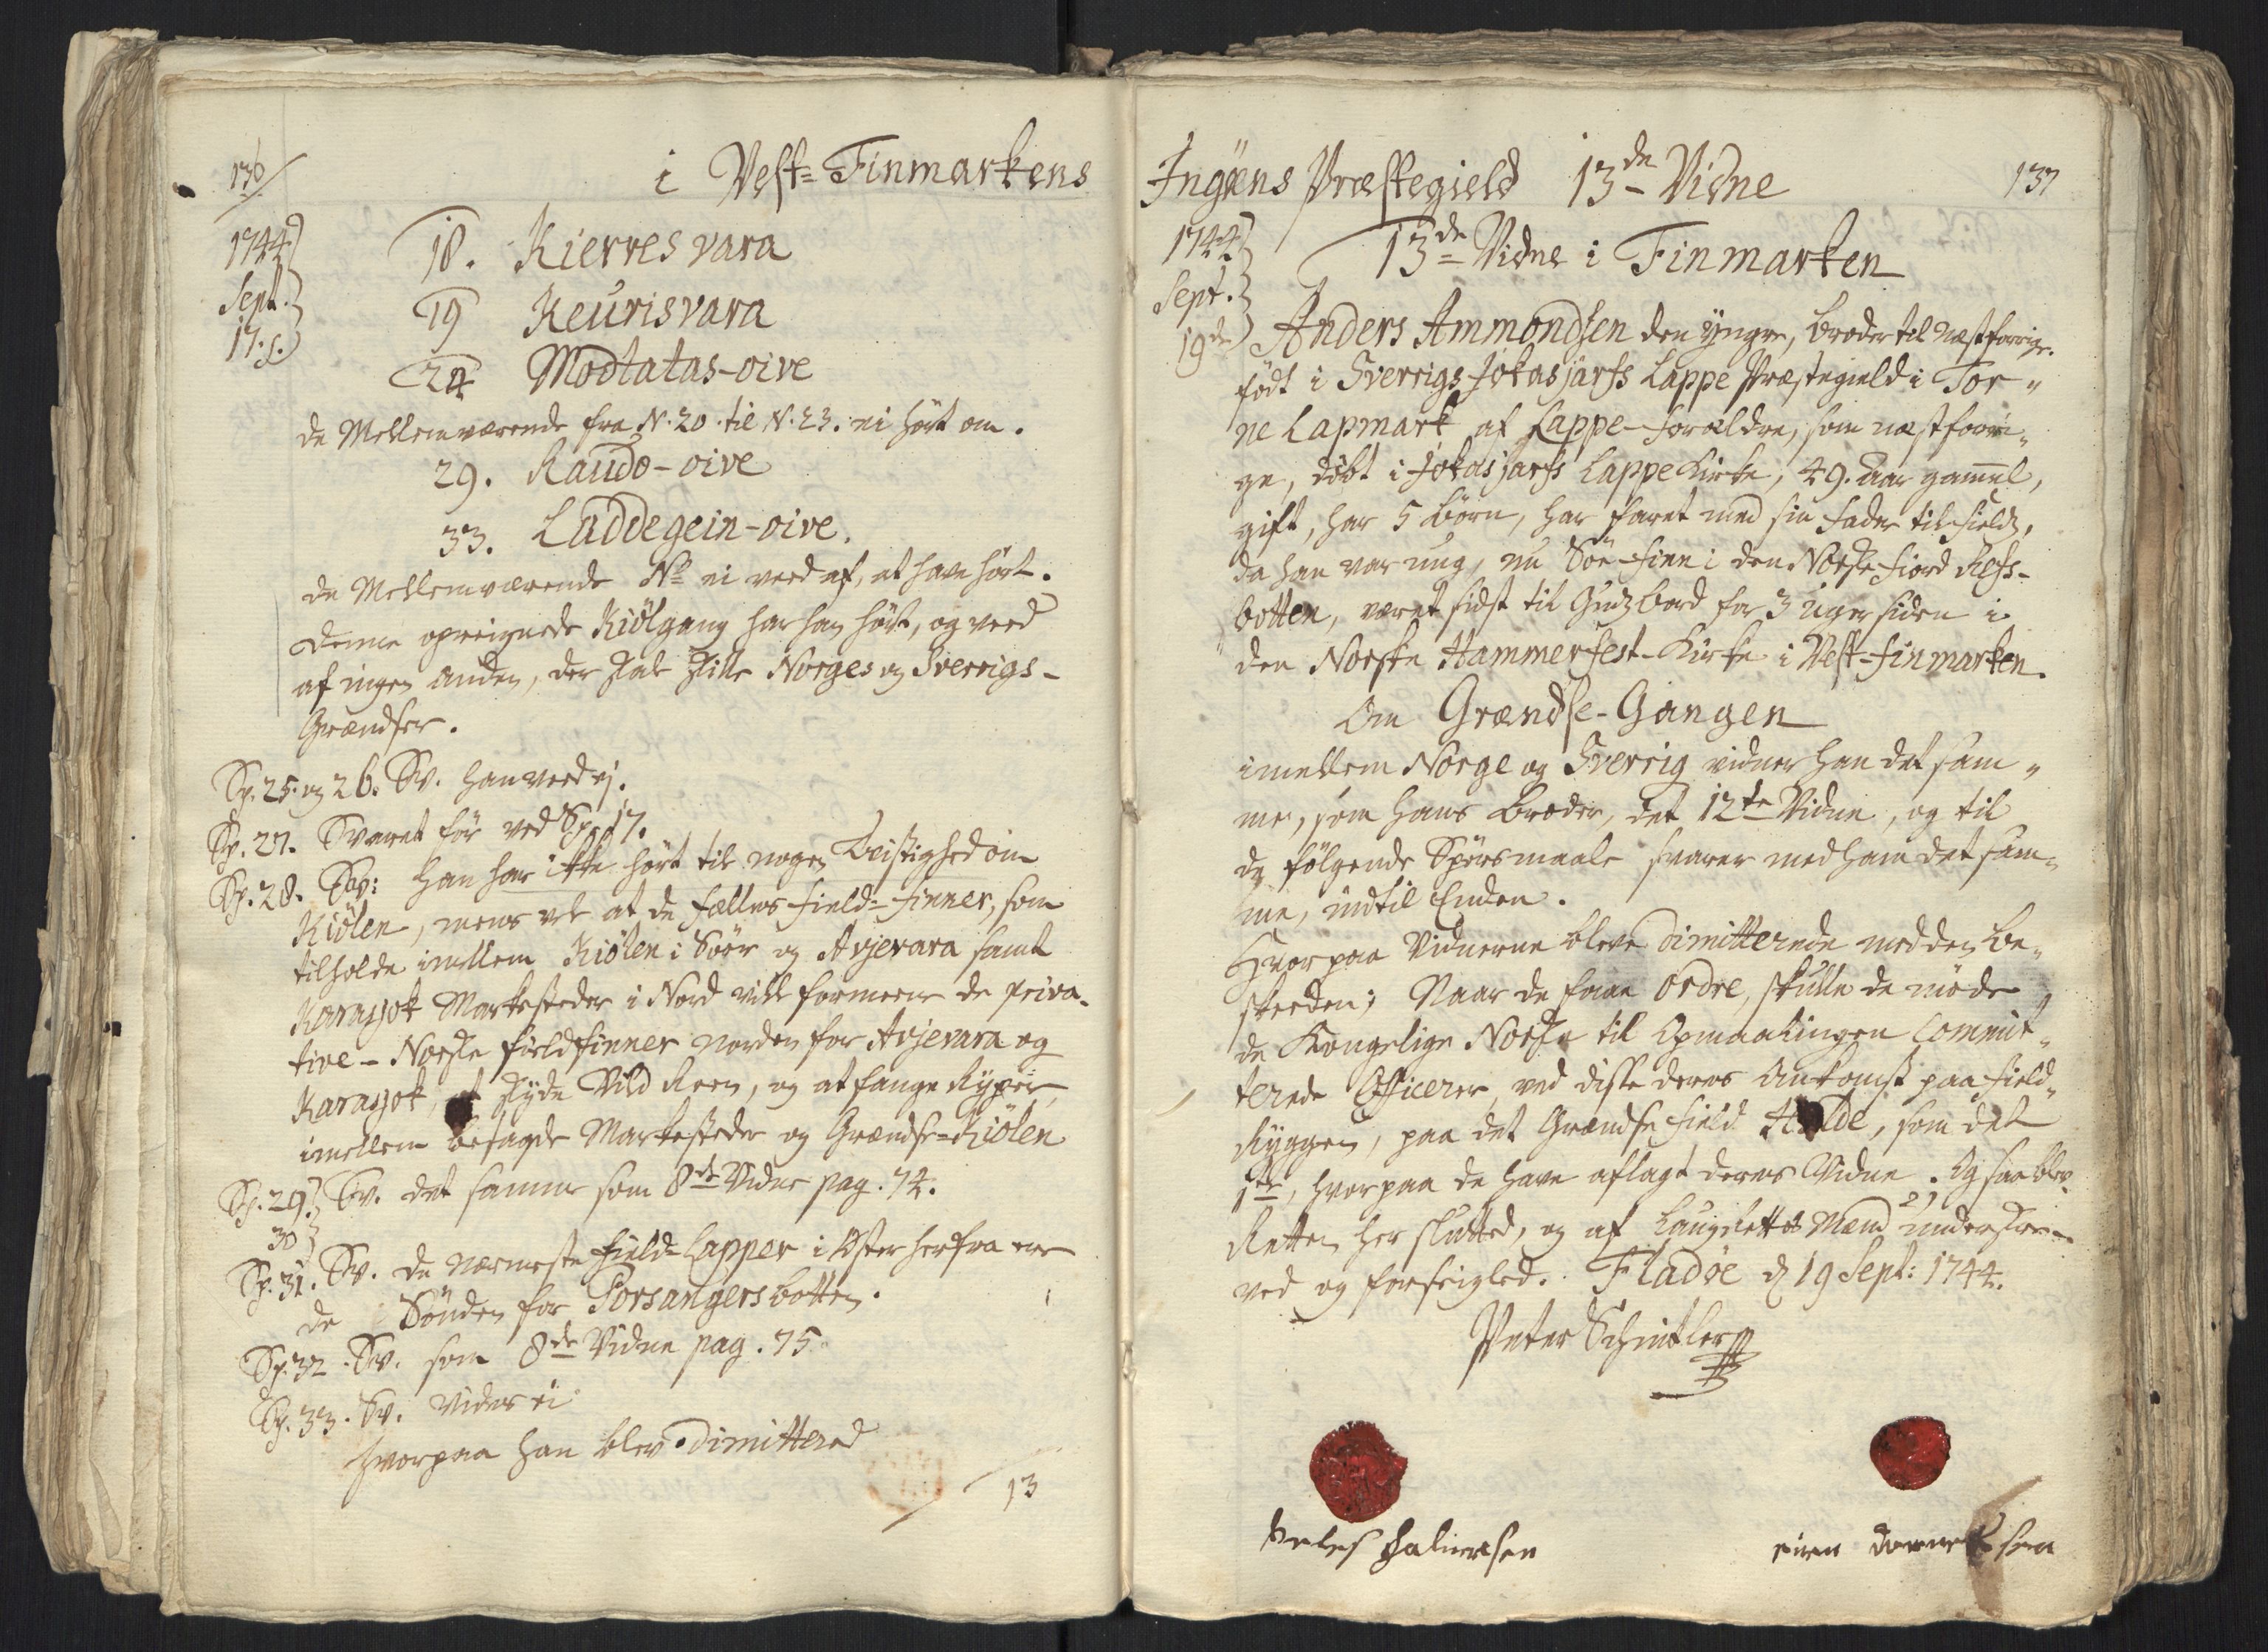 136
i Vest=Finmarkens
1744
Sept.
17. s.
18. Kierresvara
19 Keurisvara
24 Modtatas-oive
de Mellemværende fra N. 20. til N. 23. ei hört om.
29. Raudo-oive
33. Laddegein-oive.
de Mellemværende No ei veed af, at have hört.
denne opreignede Kiölgang har han hört, og veed
af ingen anden, der skal skille Norges og Sverrigs-
Grændser.
Sp. 25. og 26. Sv. han veed ej.
Sp. 27. Svaret för ved Sp. 17.
Sp. 28. Sv: han har ikke hört til nogen Tvistighed om
Kiölen, mens vel at de fælles Field=Finner, som
tilholde imellem Kiölen i Söer og Avjevara samt
Karasjok Markesteder i Nord vill formeene de priva-
tive-Norske fieldfinner norden for Avjevara og
Karasjok, at skyde Vild Reen, og at fange Ryper,
imellem besagde Markesteder og Grændse=Kiölen
Sp. 29. Sv. det samme som 8de Vidne pag. 74.
30
Sp. 31. Sv. de nærmeste Field=Lapper i Öster herfra ere
de Sönden for Porsangersbotten.
Sp. 32. Sv. som 8de Vidne pag. 75
Sp. 33. Sv. Vides ei
hvorpaa han blev dimittered
13
Ingöens Præstegield 13de Vidne
137
1744
Sept.
19de
13de Vidne i Finmarken
Anders Ammondsen den yngre, broder til næstforrige.
födt i Sverrigs Jokasjärfs Lappe Præstegield i Tor„
ne Lapmark af Lappe-Forældre, som næstforri„
ge, döbt i Jokasjarfs Lappe Kirke, 49. Aar gammel,
gift, har 5 börn, har faret med sin fader til fields,
da han var ung, nu Söe-Finn i den Norske Fiord Refs-
botten, været sidst til Gudz bord for 3 Uger siden i
den Norske Hammerfest-Kirke i Vest-Finmarken.
Om Grændse-Gangen
imellem Norge og Sverrig vidner han det sam„
me, som hans broder, det 12te Vidne, og til
de fölgende Spörsmaale svarer med ham det sam„
me, indtil Enden.
Hvorpaa Vidnerne bleve dimitterede med den be„
skeeden; Naar de faae Ordre, skulle de möde
de Kongelige Norske til Opmaalingen Commit„
terede Officerer, ved disse deres Ankomst paa Field„
Ryggen, paa det Grændse Field Halde, som det
1te, hvorpaa de have aflagt deres Vidne. Og saa blev
Retten her sluttet, og af Laugrettes Mænd underskre-
ved og forseigled. Fladöe d 19 Sept: 1744.
Peter Schnitler